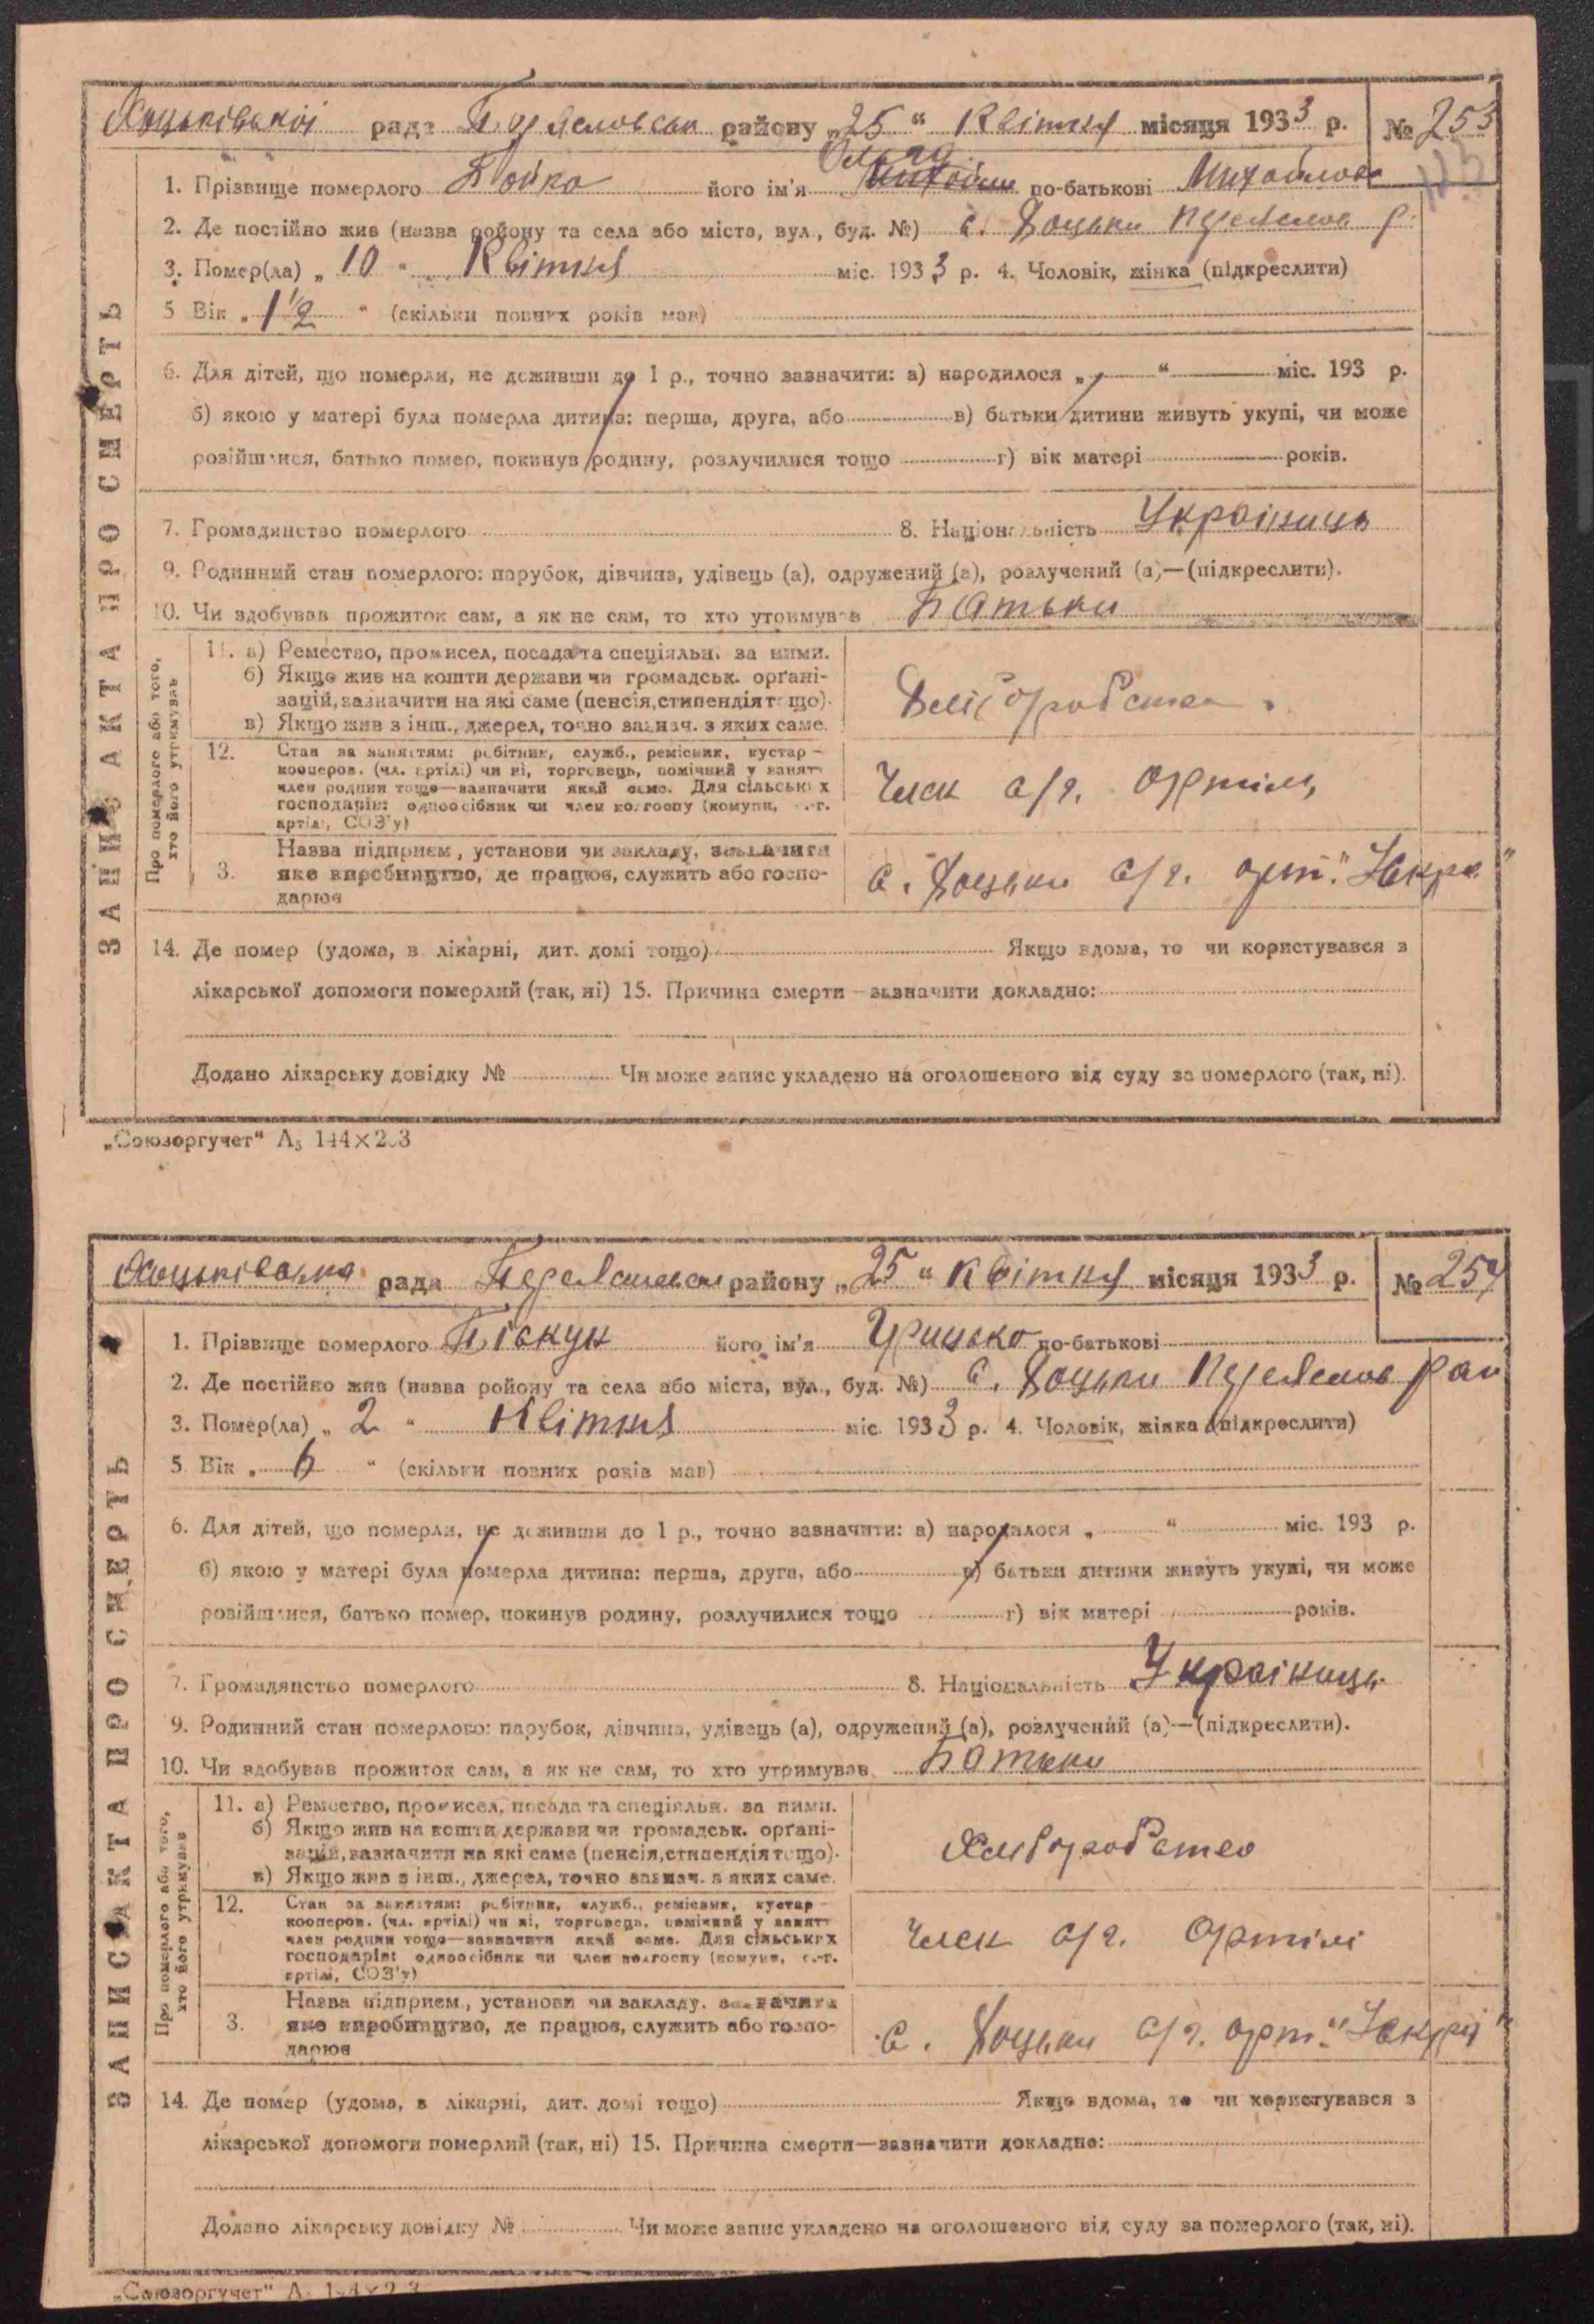 Хоцьківської рада Переяславськ району „25“ Квітня місяця 1933 р. № 253
113
Ольга
1. Прізвище померлого Бойко його ім'я по-батькові Михайлов
2. Де постійно жив (назва району та села або міста, вул., буд. №) с. Хоцьки Переяслов р.
3. Помер(ла) „10“ Квітня міс. 1933 р. 4. Чоловік, жінка (підкреслити)
5 Вік „1 1/2“ (скільки повних років мав)
6. Для дітей, що померли, не доживши до 1 р., точно зазначити: а) народилося „ “ міс. 193 р.
б) якою у матері була померла дитина: перша, друга, або в) батьки дитини живуть укупі, чи може
розійшлися, батько помер, покинув родину, розлучилися тощо г) вік матері років.
7. Громадянство померлого 8. Національність Українець
9. Родинний стан померлого: парубок, дівчина, удівець (а), одружений (а), розлучений (а)—(підкреслити).
10. Чи здобував прожиток сам, а як не сам, то хто утримував Батьки
ЗАПИС АКТА ПРО СМЕРТЬ
Про померлого або того, хто його утримував
11. а) Ремество, промисел, посада та спеціяльн. за ними.
б) Якщо жив на кошти держави чи громадськ. орґані-
зацій, зазначити на які саме (пенсія, стипендія тощо).
в) Якщо жив з інш., джерел, точно зазнач. з яких саме.
Хліборобство
12. Стан за заняттям: робітник, служб., ремісник, кустар –
кооперов. (чл. артілі) чи ні, торговець, помічний у занятт
член родини тощо—зазначити який саме. Для сільських
господарів: одноосібник чи член колгоспу (комуни, с.-г.
артілі, СОЗ'у)
Член с/г. Артілі
3. Назва підприєм., установи чи закладу, зазначити
яке виробництво, де працює, служить або госпо-
дарює
с. Хоцьки с/г. арт. "Іскра"
14. Де помер (удома, в лікарні, дит. домі тощо) Якщо вдома, то чи користувався з
лікарської допомоги померлий (так, ні) 15. Причина смерти—зазначити докладно:
Додано лікарську довідку № Чи може запис укладено на оголошеного від суду за померлого (так, ні).
„Союзоргучет“ А₅ 144×203
Хоцьківська рада Переяславськ району „25“ Квітня місяця 1933 р. № 254
1. Прізвище померлого Піскун його ім'я Грицько по-батькові
2. Де постійно жив (назва району та села або міста, вул., буд. №) с. Хоцьки Переяслов рай
3. Помер(ла) „2“ Квітня міс. 1933 р. 4. Чоловік, жінка (підкреслити)
5 Вік „6“ (скільки повних років мав)
6. Для дітей, що померли, не доживши до 1 р., точно зазначити: а) народилося „ “ міс. 193 р.
б) якою у матері була померла дитина: перша, друга, або в) батьки дитини живуть укупі, чи може
розійшлися, батько помер, покинув родину, розлучилися тощо г) вік матері років.
7. Громадянство померлого 8. Національність Українець
9. Родинний стан померлого: парубок, дівчина, удівець (а), одружений (а), розлучений (а)—(підкреслити).
10. Чи здобував прожиток сам, а як не сам, то хто утримував Батьки
ЗАПИС АКТА ПРО СМЕРТЬ
Про померлого або того, хто його утримував
11. а) Ремество, промисел, посада та спеціяльн. за ними.
б) Якщо жив на кошти держави чи громадськ. орґані-
зацій, зазначити на які саме (пенсія, стипендія тощо).
в) Якщо жив з інш., джерел, точно зазнач. з яких саме.
Хліборобство
12. Стан за заняттям: робітник, служб., ремісник, кустар –
кооперов. (чл. артілі) чи ні, торговець, помічний у занятт
член родини тощо—зазначити який саме. Для сільських
господарів: одноосібник чи член колгоспу (комуни, с.-г.
артілі, СОЗ'у)
Член с/г. Артілі
3. Назва підприєм., установи чи закладу, зазначити
яке виробництво, де працює, служить або госпо-
дарює
с. Хоцьки с/г. арт. "Іскра"
14. Де помер (удома, в лікарні, дит. домі тощо) Якщо вдома, то чи користувався з
лікарської допомоги померлий (так, ні) 15. Причина смерти—зазначити докладно:
Додано лікарську довідку № Чи може запис укладено на оголошеного від суду за померлого (так, ні).
„Союзоргучет“ А₅ 144×203